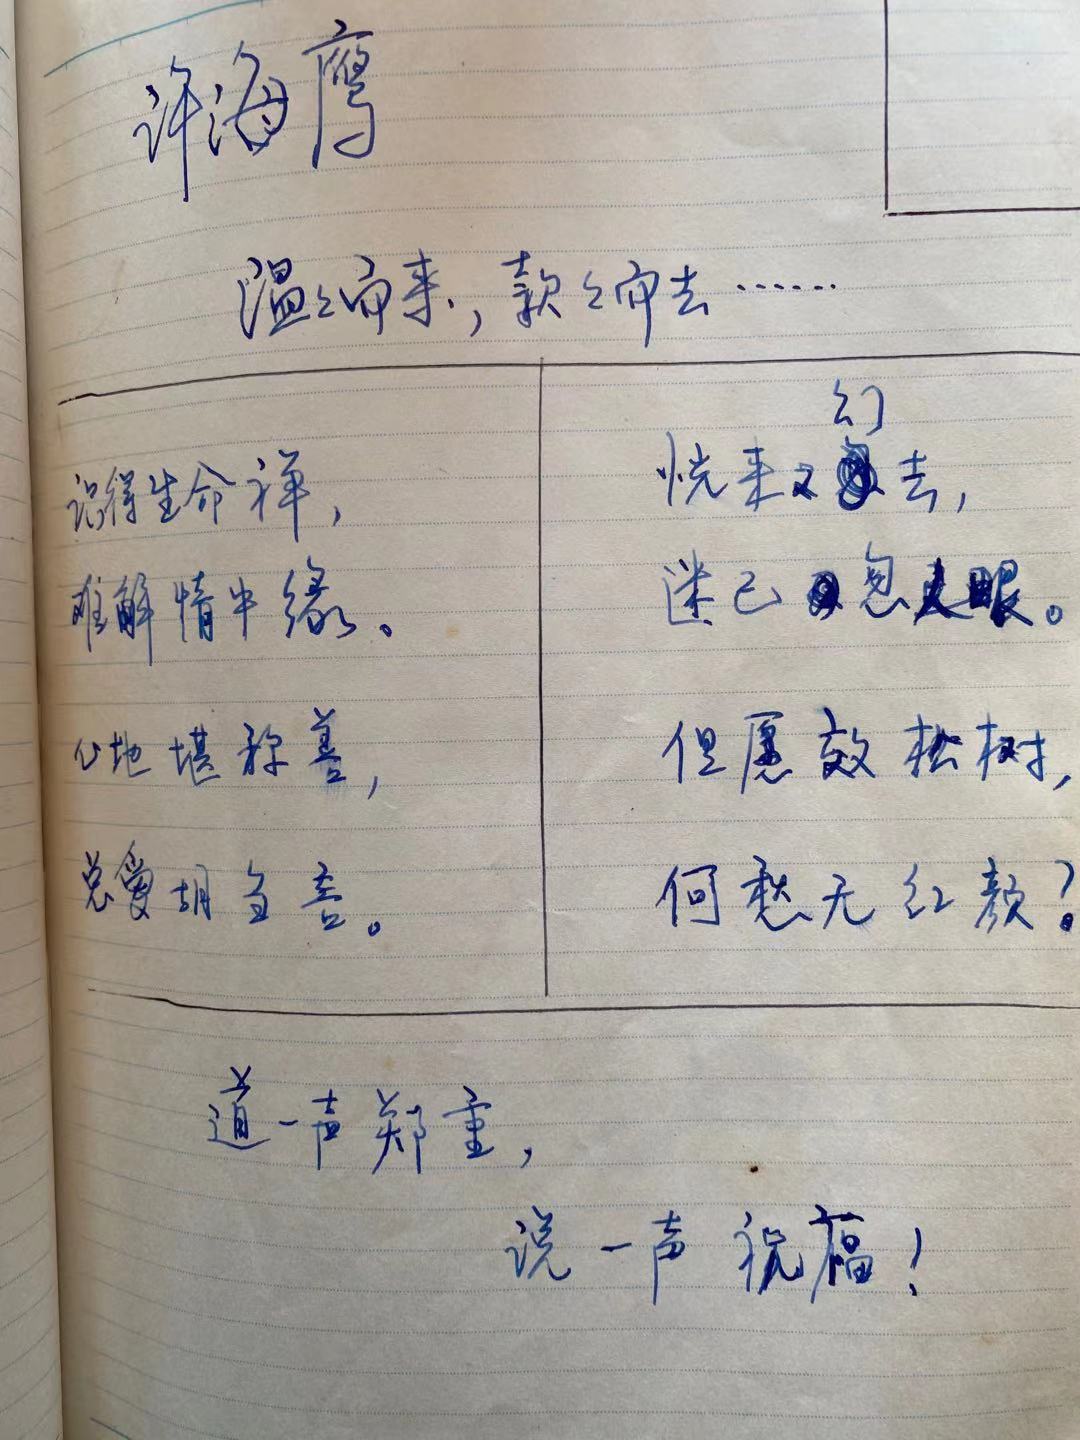 许海鹰
温々而来，款々而去……
识得生命禅，
难解情中缘。
心地堪称善，
总爱胡自言。
恍来又幻去，
迷已忽眼。
但愿效松树，
何愁无红颜？
道一声郑重，
说一声祝福！